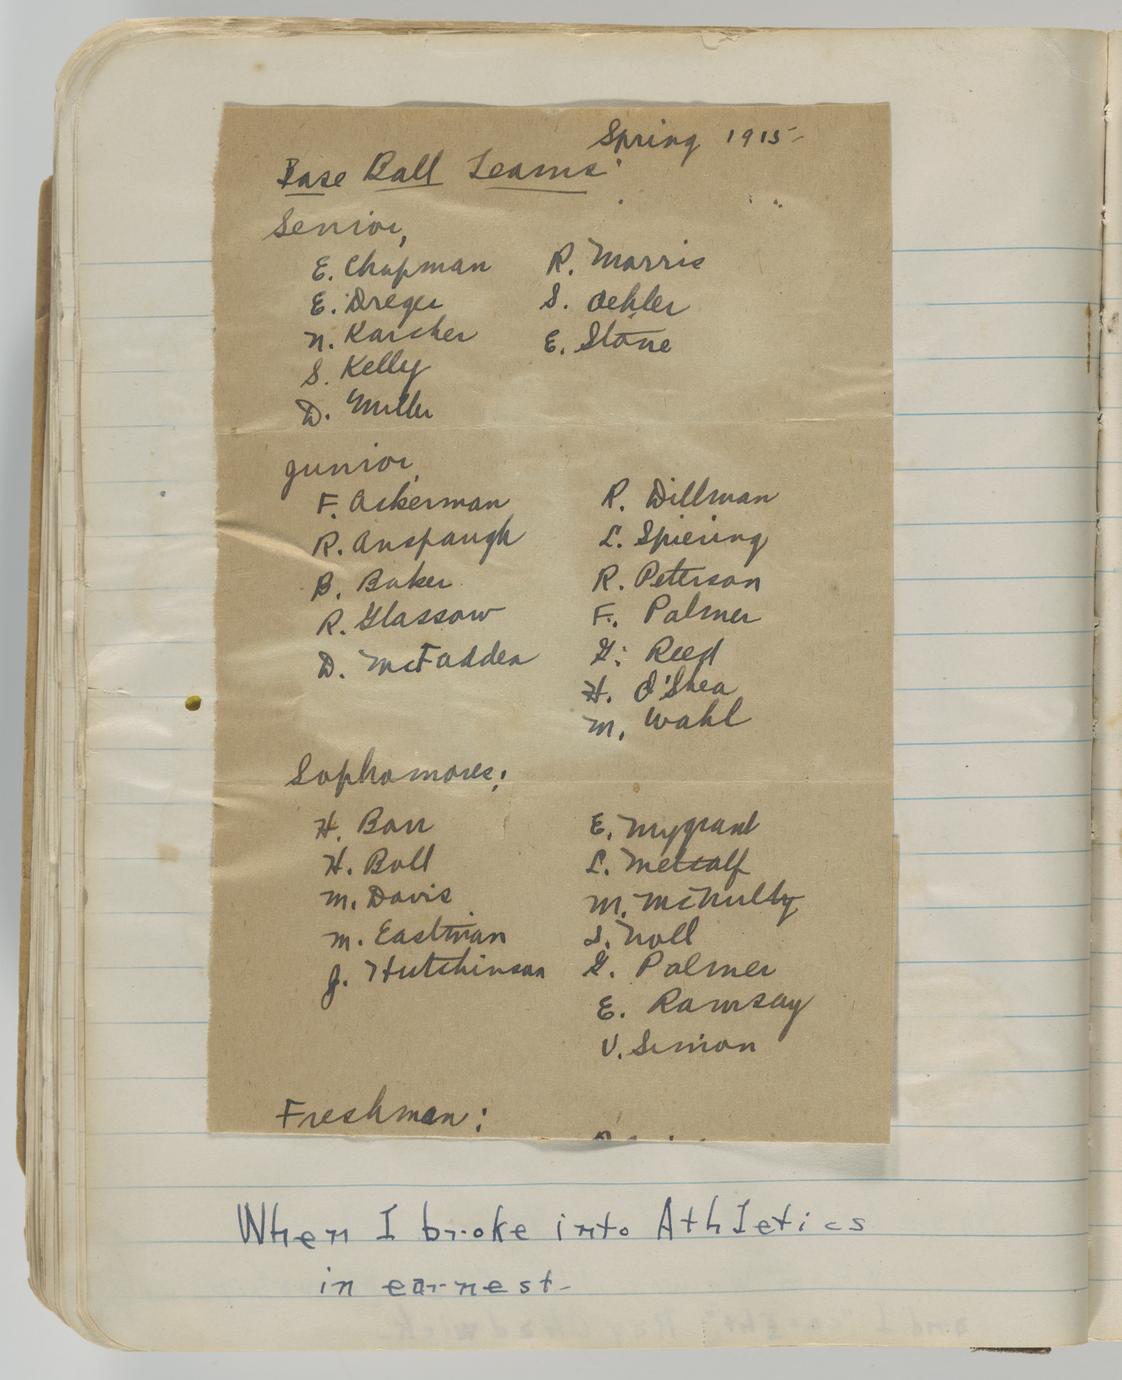 Spring 1915
Base Ball Teams:
Senior,
E. Chapman
E. Dreger
N. Karcher
S. Kelly
D. Miller
R. Morris
S. Oehler
E. Stone
Junior,
F. Ackerman
R. Anspaugh
B. Baker
R. Glassow
D. McFadden
R. Dillman
L. Spiering
R. Peterson
F. Palmer
G. Reed
H. O'Shea
M. Wahl
Sophomores:
H. Barr
H. Boll
M. Davis
M. Eastman
J. Hutchinson
E. Mygrant
L. Metcalf
M. McNulty
I. Noll
G. Palmer
E. Ramsay
V. Simon
Freshman:
When I broke into Athletics
in earnest-